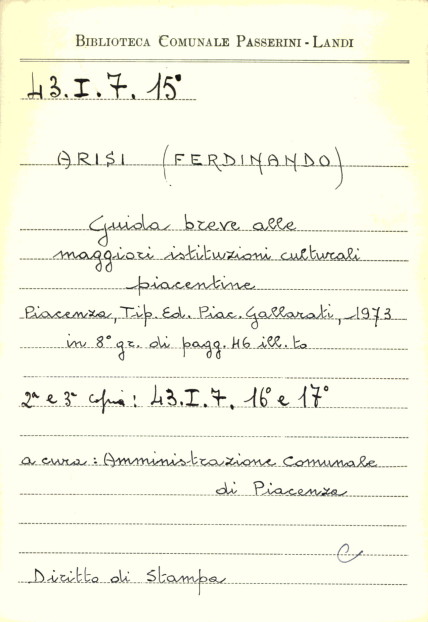 BIBLIOTECA COMUNALE PASSERINI - LANDI
43.I.7. 15°
ARISI (FERDINANDO)
Guida breve alle
maggiori istituzioni culturali
piacentine
Piacenza, Tip. Ed. Piac. Gallarati, 1973
in 8° gr. di pagg. 46 ill.to
2ª e 3ª copia: 43.I.7. 16° e 17°
a cura: Amministrazione Comunale
di Piacenza
C
Diritto di Stampa